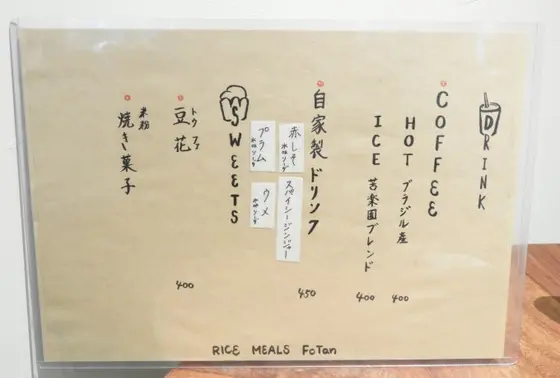 DRINK
COFFEE
HOT ブラジル産
400
ICE 苦楽園ブレンド
400
自家製ドリンク
450
赤しそ
水or ソーダ
スパイシージンジャー
プラム
水or ソーダ
ウメ
水or ソーダ
SWEETS
豆花
トウファ
400
米粉
焼き菓子
RICE MEALS FcTan